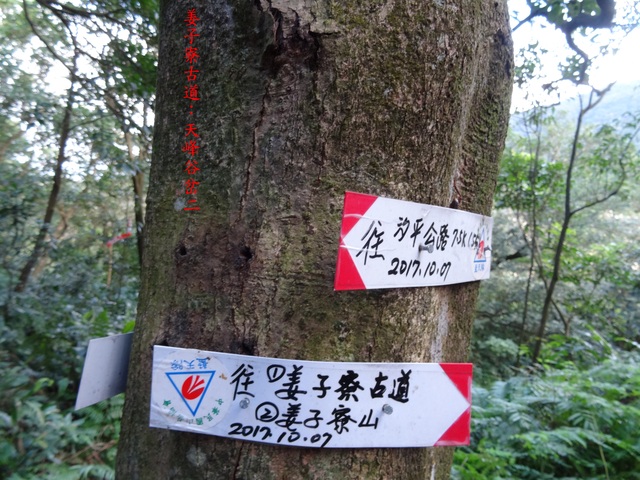 姜子寮古道,天峰谷岔二
往 汐平公路 7.5K
2017.10.07
藍天隊
往 ①姜子寮古道
②姜子寮山
2017.10.07